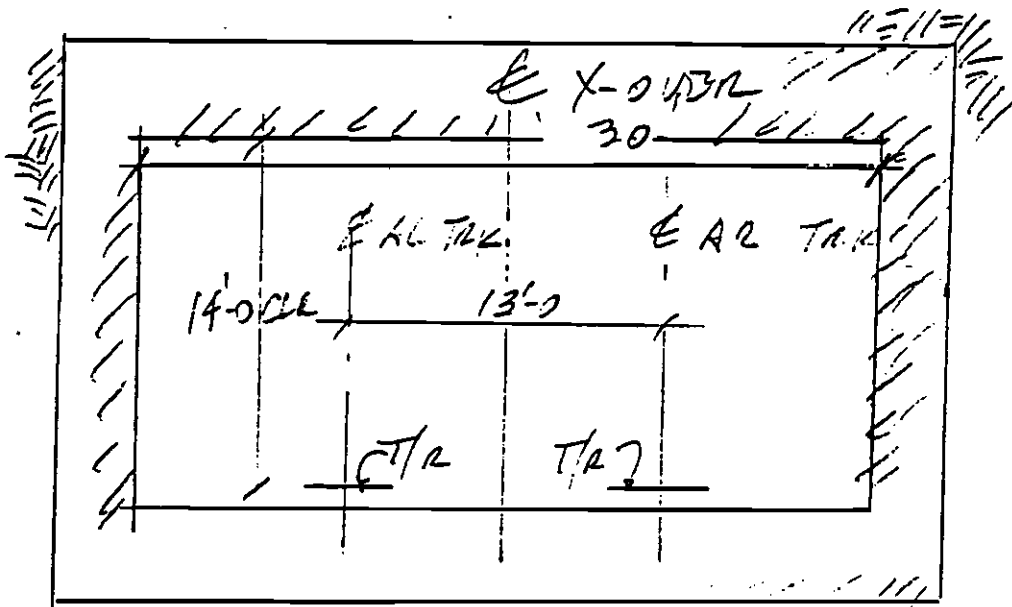 ℄ X-OVER
30
℄ AL TRK.
℄ AR TRK
14'-0 CLR
13'-0
T/R
T/R